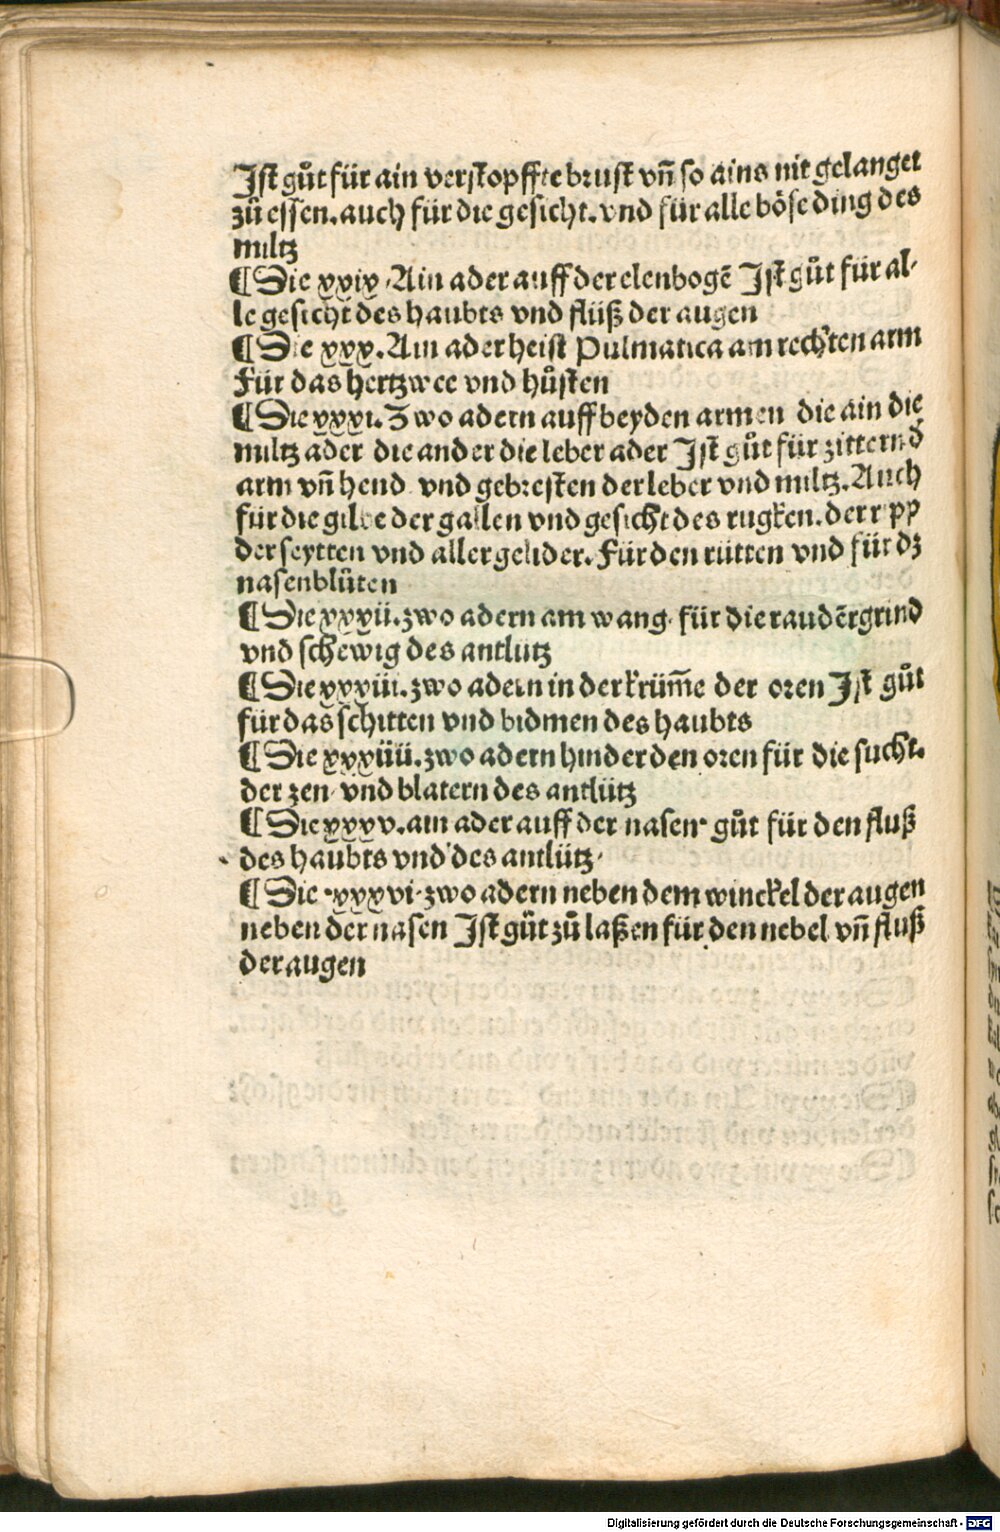 Jſt gůt für ain verſtopffte bꝛuſt vñ ſo ains nit gelanget
zů eſſen. auch für die geſicht. vnd für alle böſe ding des
miltz
¶ Die xxix. Ain ader auff der elenbogē Jſt gůt für al⸗
le geſicht des haubts vnd flüß der augen
¶ Die xxx. Ain ader heiſt Pulmatica am rechten arm
Für das hertzwee vnd hůſten
¶ Die xxxi. Zwo adern auff beyden armen die ain die
miltz ader die ander die leber ader Jſt gůt für zittern d̕
arm vñ hend vnd gebꝛeſten der leber vnd miltz. Auch
für die gilbe der gallen vnd geſicht des rugken. der ripp
der ſeytten vnd aller gelider. Für den rütten vnd für dz
naſenblůten
¶ Die xxxii. zwo adern am wang für die raudērgrind
vnd ſchewig des antlütz
¶ Die xxxiii. zwo adern in der krüm̄e der oꝛen Jſt gůt
für das ſchitten vnd bidmen des haubts
¶ Die xxxiiii. zwo adern hinder den oꝛen für die ſucht.
der zen vnd blatern des antlütz
¶ Die xxxv. ain ader auff der naſen gůt für den fluß
des haubts vnd des antlütz
¶ Die xxxvi. zwo adern neben dem winckel der augen
neben der naſen Jſt gůt zů laßen für den nebel vñ fluß
der augen
Digitalisierung gefördert durch die Deutsche Forschungsgemeinschaft - DFG